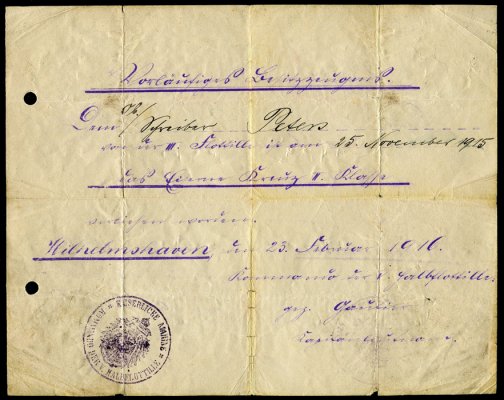 Vorläufiges Besitzzeugnis.
Dem Schreiber Peters
von der III. Flottille ist am 25. November 1915
das Eiserne Kreuz II. Klasse
verliehen worden.
Wilhelmshaven, den 23. Februar 1916
Kommando der Halbflottille.
gez.
KAISERLICHE MARINE
HALBFLOTTILLE